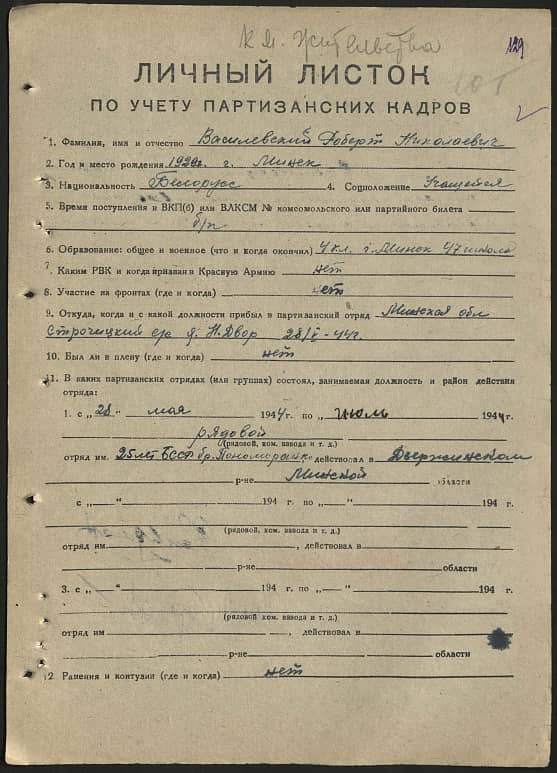 К м. Жительства
129
ЛИЧНЫЙ ЛИСТОК
ПО УЧЕТУ ПАРТИЗАНСКИХ КАДРОВ
1. Фамилия, имя и отчество Василевский Роберт Николаевич
2. Год и место рождения г. Минск
3. Национальность Белорусс 4. Соцположение Учащейся
5. Время поступления и ВКП(б) или ВЛКСМ № комсомольского или партийного билета
б/п
6. Образование: общее и военное (что и когда окончил) 4 кл. г. Минск 47 школа
7. Каким РВК и когда призван в Красную Армию нет
8. Участие на фронтах (где и когда) нет
9. Откуда, когда и с какой должности прибыл в партизанский отряд Минская обл
Строчицкий с/с д. Н. Двор 28/V-44г.
10. Был ли в плену (где и когда) нет
11. В каких партизанских отрядах (или группах) состоял, занимаемая должность и район действия
отряда:
1. с „28" мая 1944 г. по „ июль 1944 г.
рядовой
(рядовой, ком. взвода и т. д.)
отряд им. 25 лет БССР бр. Пономоренко действовал в Дзержинском
р-не Минской области
с „—" 194 г. по „—" 194 г.
(рядовой, ком. взвода и т. д.)
отряд им , действовал в
р-не области
3. с „—" 194 г. по „—" 194 г.
(рядовой, ком. взвода и т. д.)
отряд им , действовал в
р-не области
12. Ранения и контузии (где и когда) нет